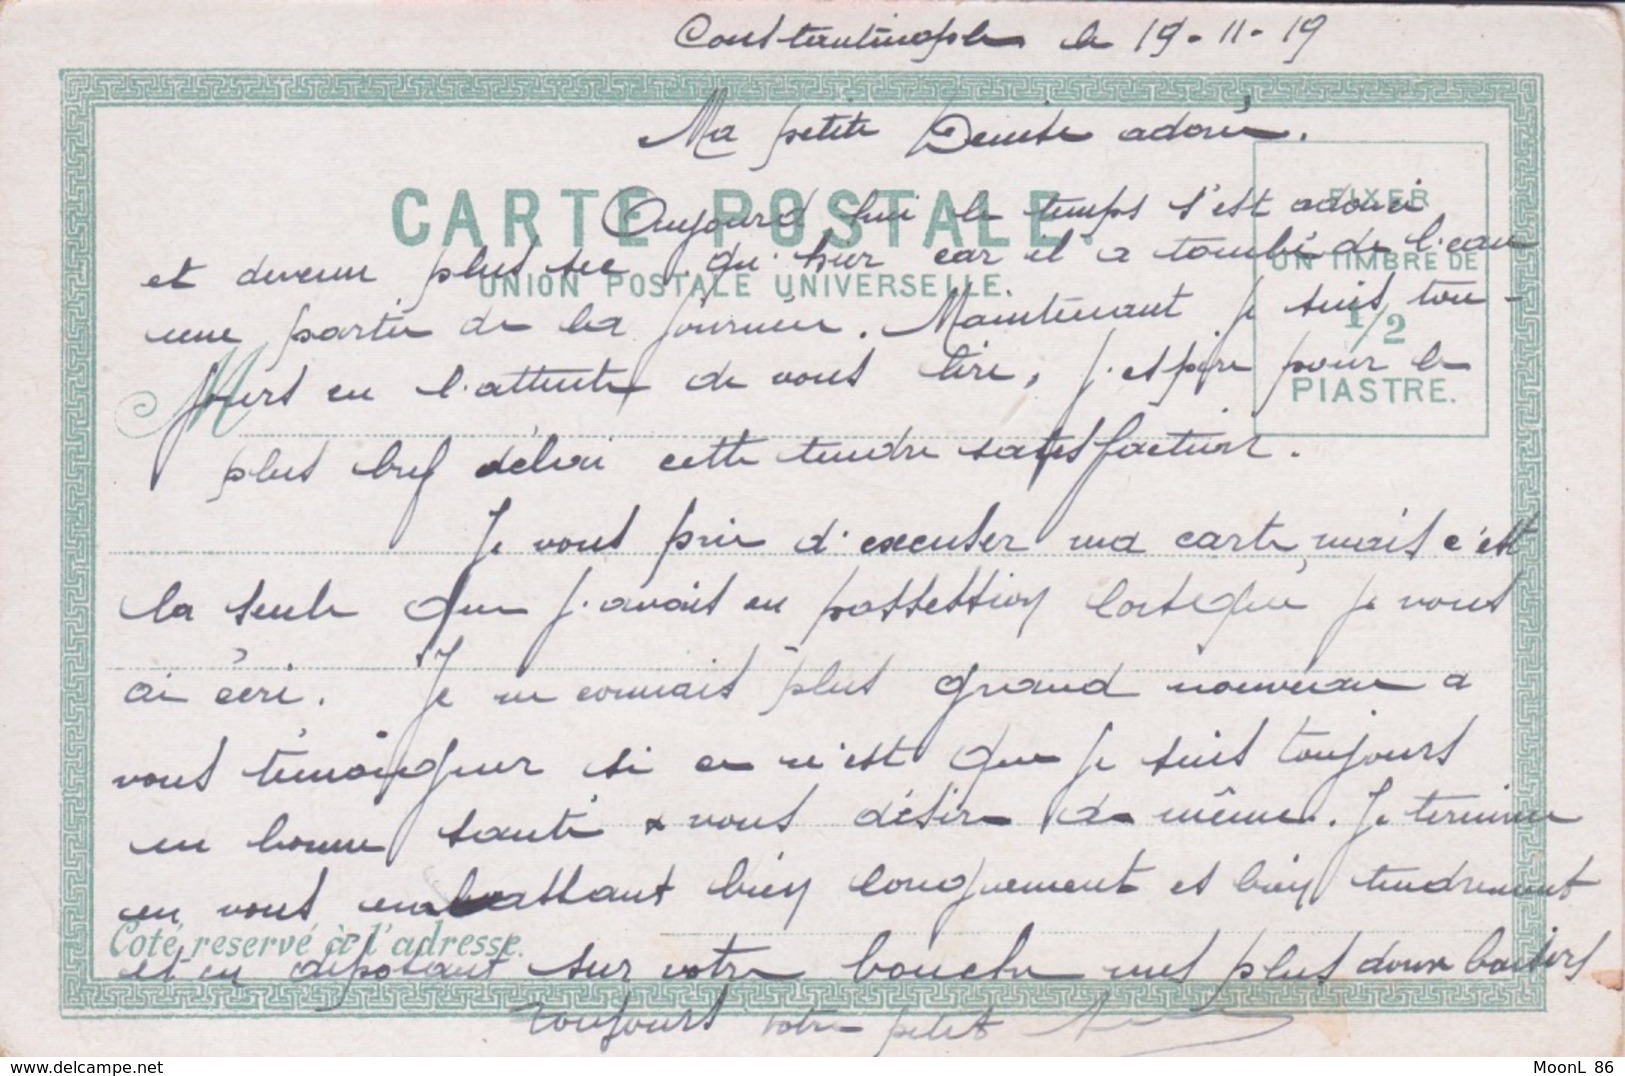 Constantinople le 19-11-19
Ma petite Denise adorée.
CARTE POSTALE.
FIXER
Aujourd'hui le temps s'est adouci
et devenu plus sec qu'hier car il a tombé de l'eau
UNION POSTALE UNIVERSELLE.
UN TIMBRE DE
une partie de la journée. Maintenant je suis tou-
1/2
jours en l'attente de vous lire, j'espère pour le
PIASTRE.
M
plus bref délai cette tendre satisfaction.
Je vous prie d'excuser ma carte, mais c'est
la seule que j'avais en possession lorsqu' je vous
ai écri. Je ne connais plus grand nouveau a
vous témoigner si ce n'est que je suis toujours
en bonne santé & vous désire de même. Je termine
en vous embrassant bien longuement et bien tendrement
Coté reservé à l'adresse.
et en déposant sur votre bouche mes plus doux baisers
Toujours votre petit
MoonL 86